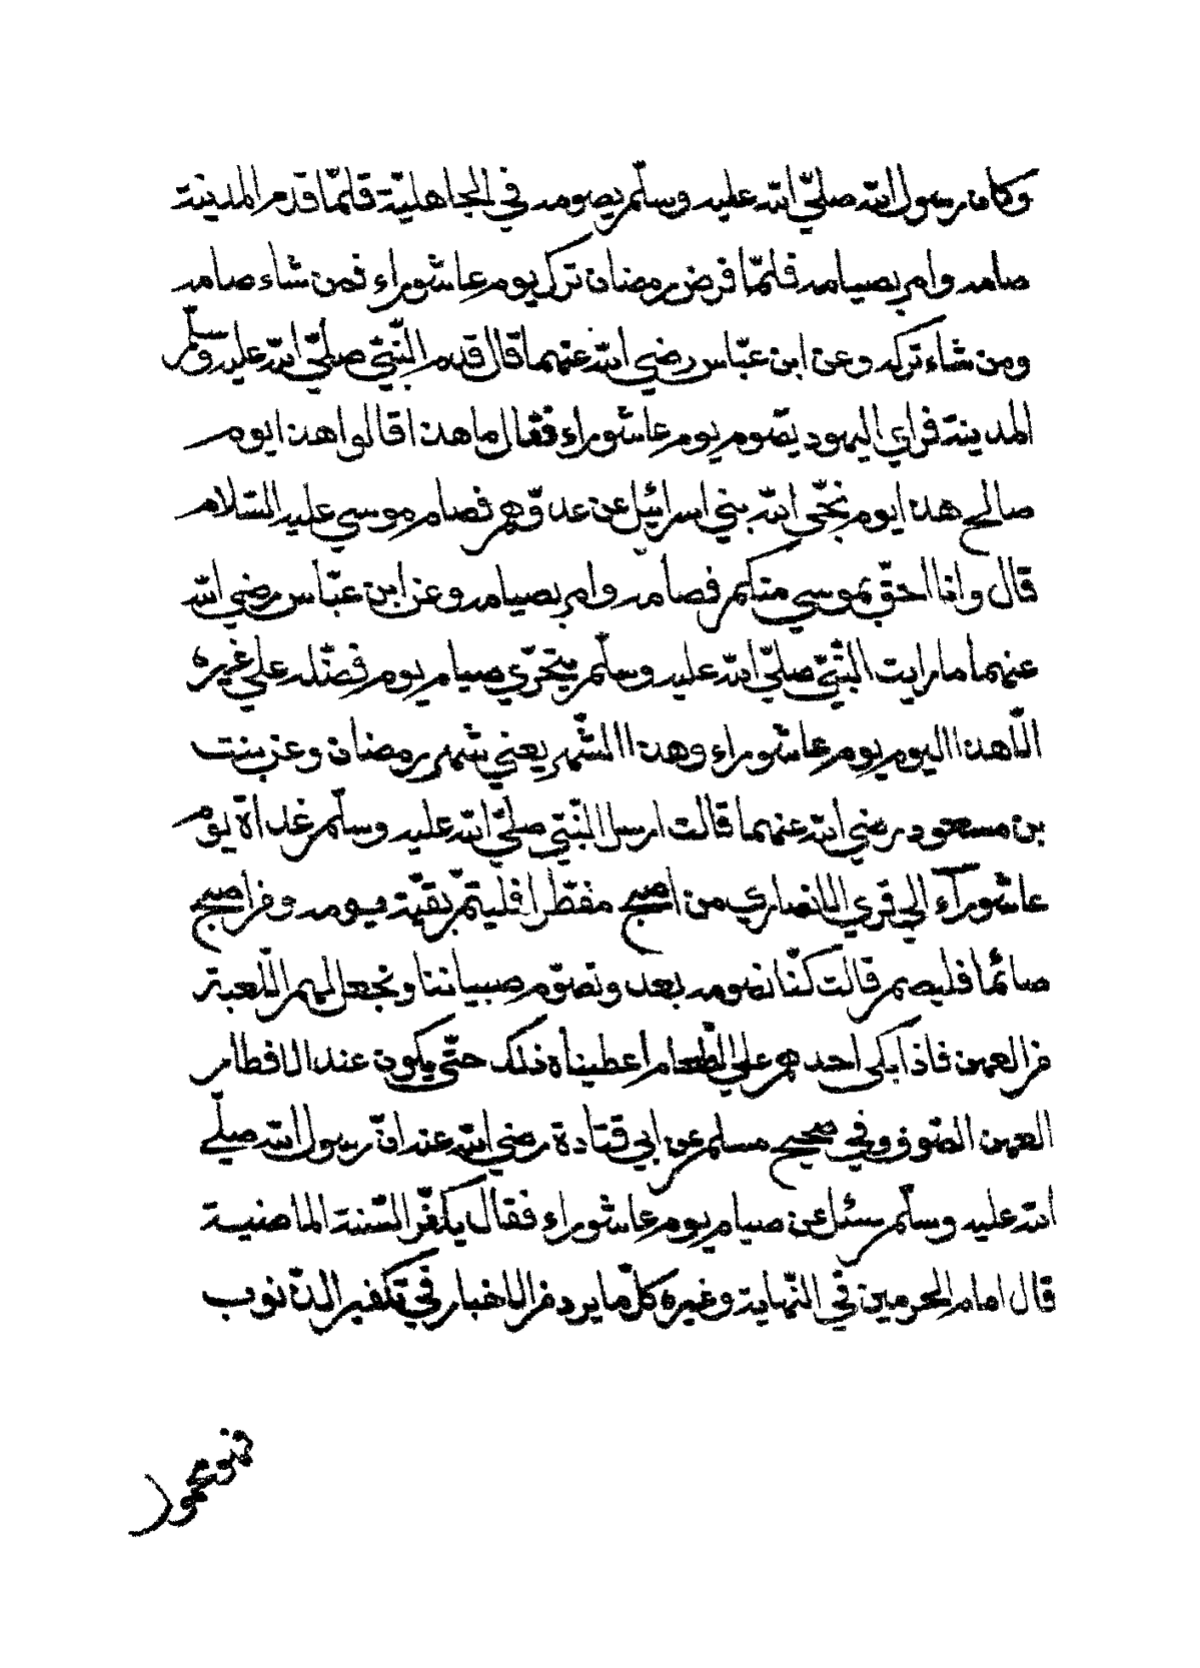 وكان رسول الله صلّي الله عليه وسلّم يصومه في الجاهليّة فلمّا قدم المدينة
صامه وامر بصيامه فلمّا فرض رمضان ترك يوم عاشوراء فمن شاء صامه
ومن شاء تركه وعن ابن عبّاس رضي الله عنهما قال قدم النّبيّ صلّي الله عليه وسلّم
المدينة فراي اليهود يصوم يوم عاشوراء فقال ما هذا قالوا هذا يوم
صالح هذا يوم نجّي الله بني اسرائيل عن عدوّهم فصام موسي عليه السّلام
قال وانا احقّ بموسي منكم فصامه وامر بصيامه وعن ابن عبّاس رضي الله
عنهما ما رايت النّبيّ صلّي الله عليه وسلّم يتحرّي صيام يوم فضّله علي غيره
الّا هذا اليوم يوم عاشوراء وهذا الشّهر يعني شهر رمضان وعن بنت
بن مسعود رضي الله عنهما قالت ارسل النّبي صلّي الله عليه وسلّم غداة يوم
عاشورآء الي قري الانصاري من اصبح مفطّرا فليتمّ بقيّة يومه ومن اصبح
صائما فليصم قالت كنّا نصومه بعد ونصوّم صبياننا ونجعل لهم اللّعبة
من العهن فاذا بكي احدهم علي الطّعام اعطيناه ذلك حتّي يكون عند الافطار
العهن الصّوف وفي صحيح مسلم عن ابي قتادة رضي الله عنه انّ رسول الله صلّي
الله عليه وسلّم سئل عن صيام يوم عاشوراء فقال يكفّر السّنة الماضية
قال امام الحرمين في النّهاية وغيره كلّ ما يرد من الاخبار في تكفير الذّنوب